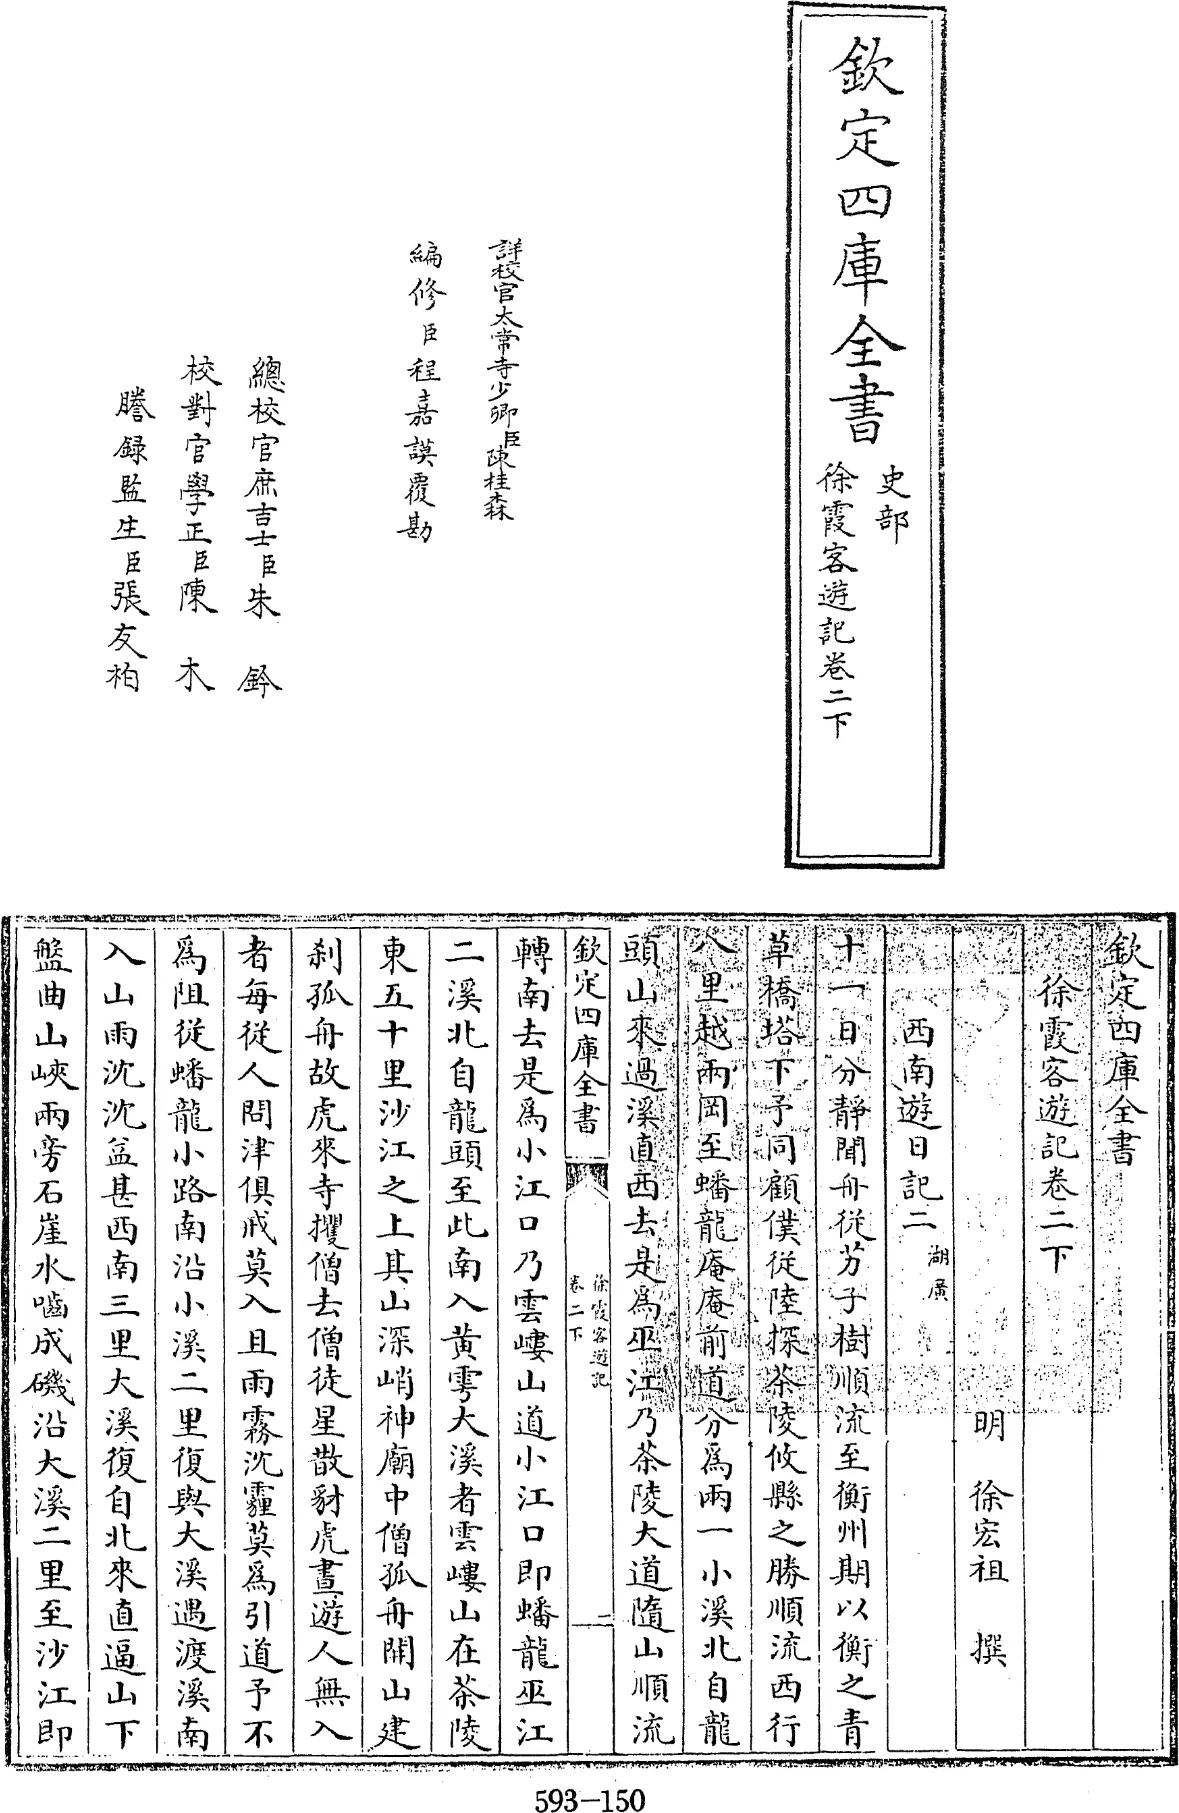 欽定四庫全書
史部
徐霞客遊記卷二下
詳校官太常寺少卿臣陳桂森
編修臣程嘉謨覆勘
總校官庶吉士臣朱鈐
校對官學正臣陳木
謄錄監生臣張友柏
欽定四庫全書
徐霞客遊記卷二下
明 徐宏祖 撰
西南遊日記二湖廣
十一日分靜聞舟從芳子樹順流至衡州期以衡之青
草橋塔下予同顧僕從陸探茶陵攸縣之勝順流西行
八里越兩岡至蟠龍庵庵前道分為兩一小溪北自龍
頭山來過溪直西去是為巫江乃茶陵大道隨山順流
欽定四庫全書
徐霞客遊記
卷二下
二
轉南去是為小江口乃雲嶁山道小江口即蟠龍巫江
二溪北自龍頭至此南入黃雩大溪者雲嶁山在茶陵
東五十里沙江之上其山深峭神廟中僧孤舟開山建
刹孤舟故虎來寺攫僧去僧徒星散豺虎晝遊人無入
者每從人問津俱戒莫入且雨霧沈霾莫為引道予不
為阻從蟠龍小路南沿小溪二里復與大溪遇渡溪南
入山雨沈沈益甚西南三里大溪復自北來直逼山下
盤曲山峽兩旁石崖水嚙成磯沿大溪二里至沙江即
593-150